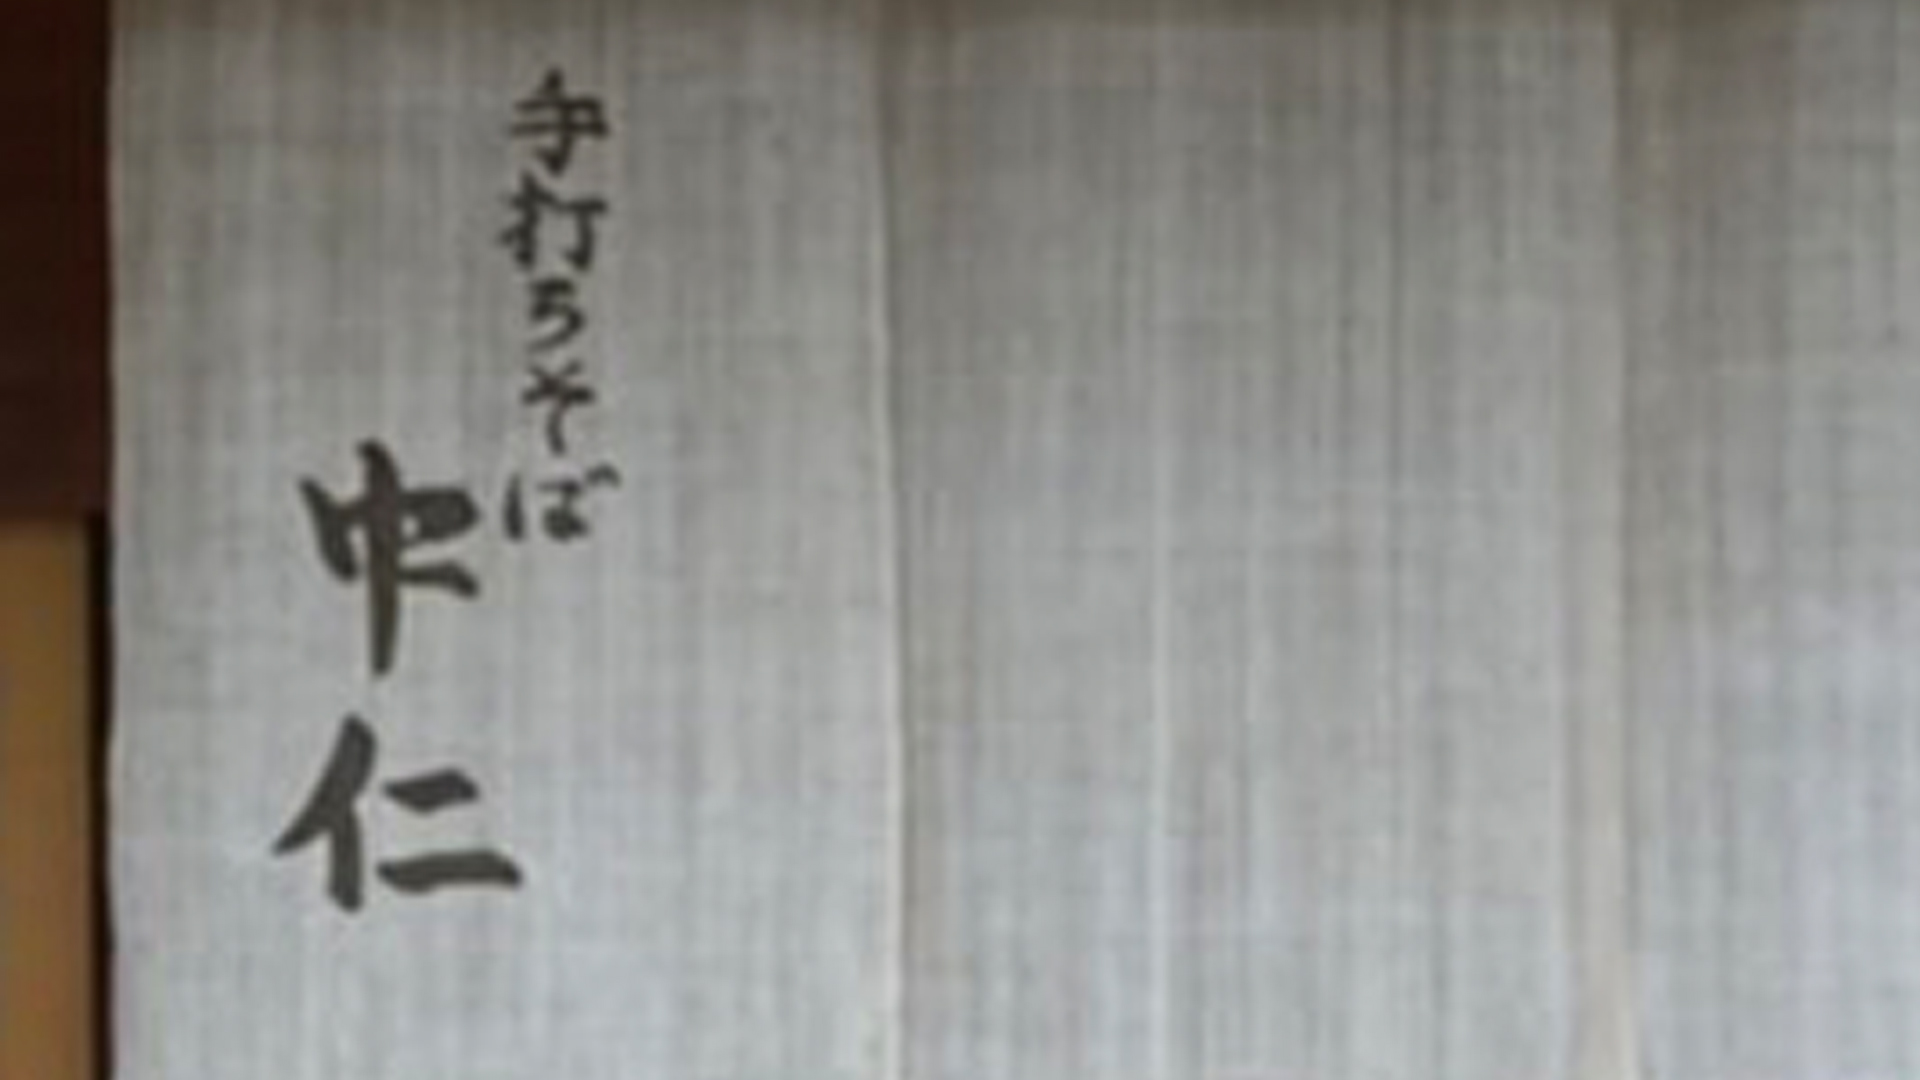 手打ちそば
中仁